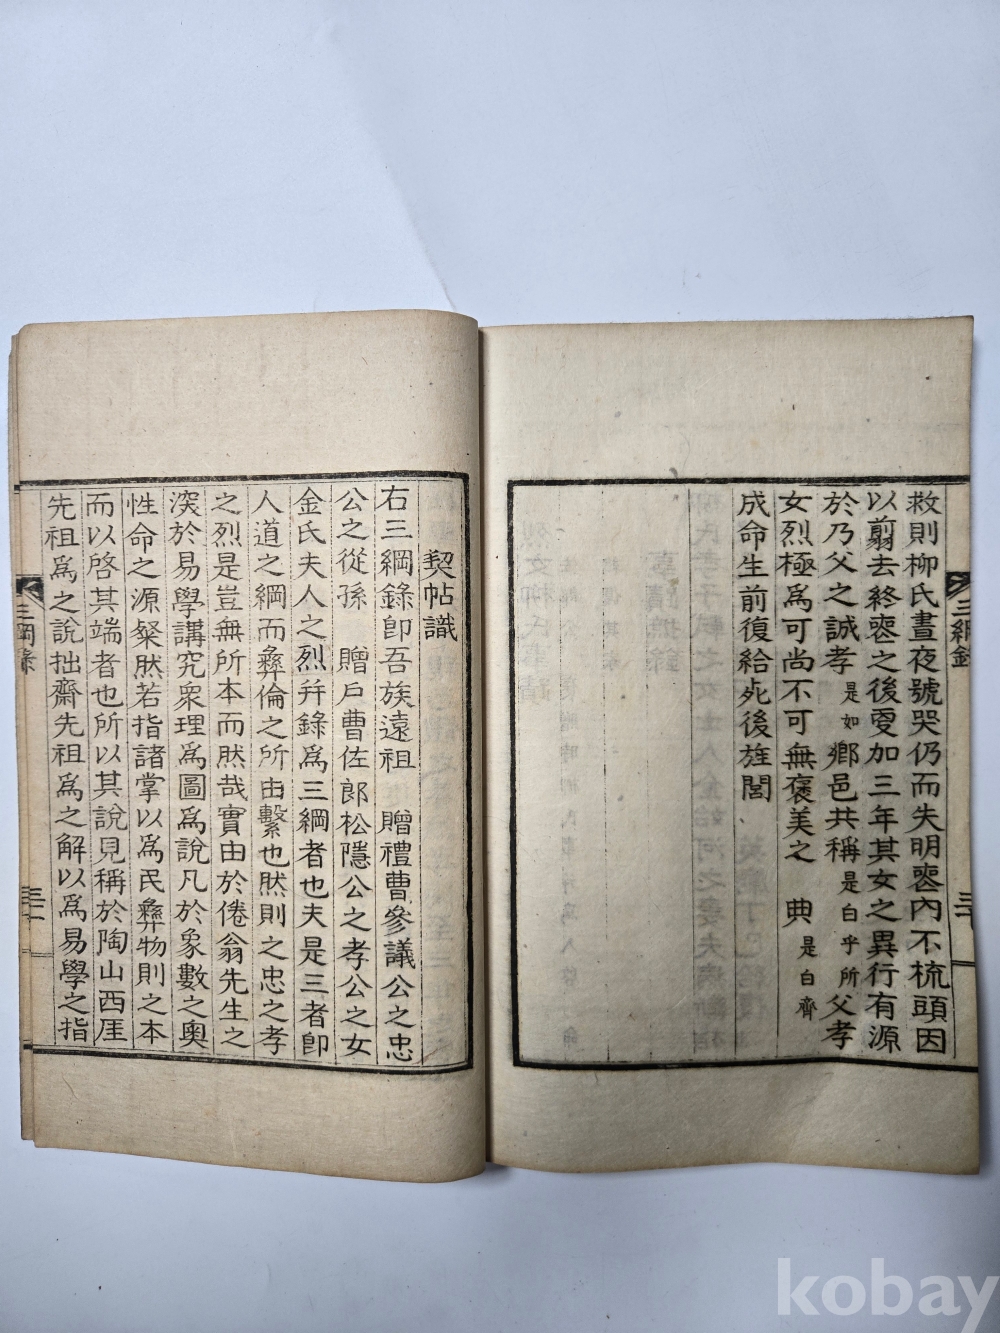 救則柳氏晝夜號哭仍而失明喪內不梳頭因
以翦去終喪之後更加三年其女之異行有源
於乃父之誠孝是如鄉邑共稱是白乎所父孝
女烈極爲可尚不可無褒美之 典是白齊
成命生前復給死後旌閭
三綱錄
契帖識
右三綱錄卽吾族遠祖 贈禮曹參議公之忠
公之從孫 贈戶曹佐郎松隱公之孝公之女
金氏夫人之烈幷錄爲三綱者也夫是三者卽
人道之綱而彝倫之所由繫也然則之忠之孝
之烈是豈無所本而然哉實由於倦翁先生之
深於易學講究衆理爲圖爲說凡於象數之奧
性命之源粲然若指諸掌以爲民彝物則之本
而以啓其端者也所以其說見稱於陶山西厓
先祖爲之說拙齋先祖爲之解以爲易學之指
三綱錄
kobay